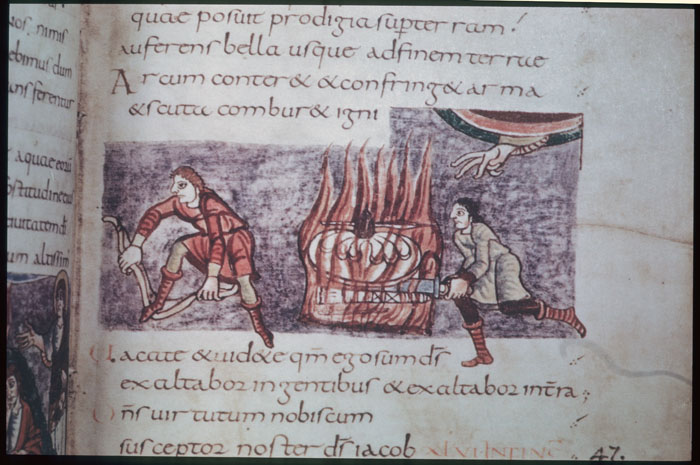 os. nimis
ebimus dum
ans feren tur
aquae eorū
titudine
ivitatem dī
um altissim
quae posuit prodigia sup terram!
auferens bella usque ad finem terrae
Arcum conter& & confring& arma
& scuta combur& igni
Uacate & uid&e qm̄ ego sum dī
exaltabor in gentibus & exaltabor in tra
Dn̄s uirtutum nobiscum
susceptor noster dī iacob
47.